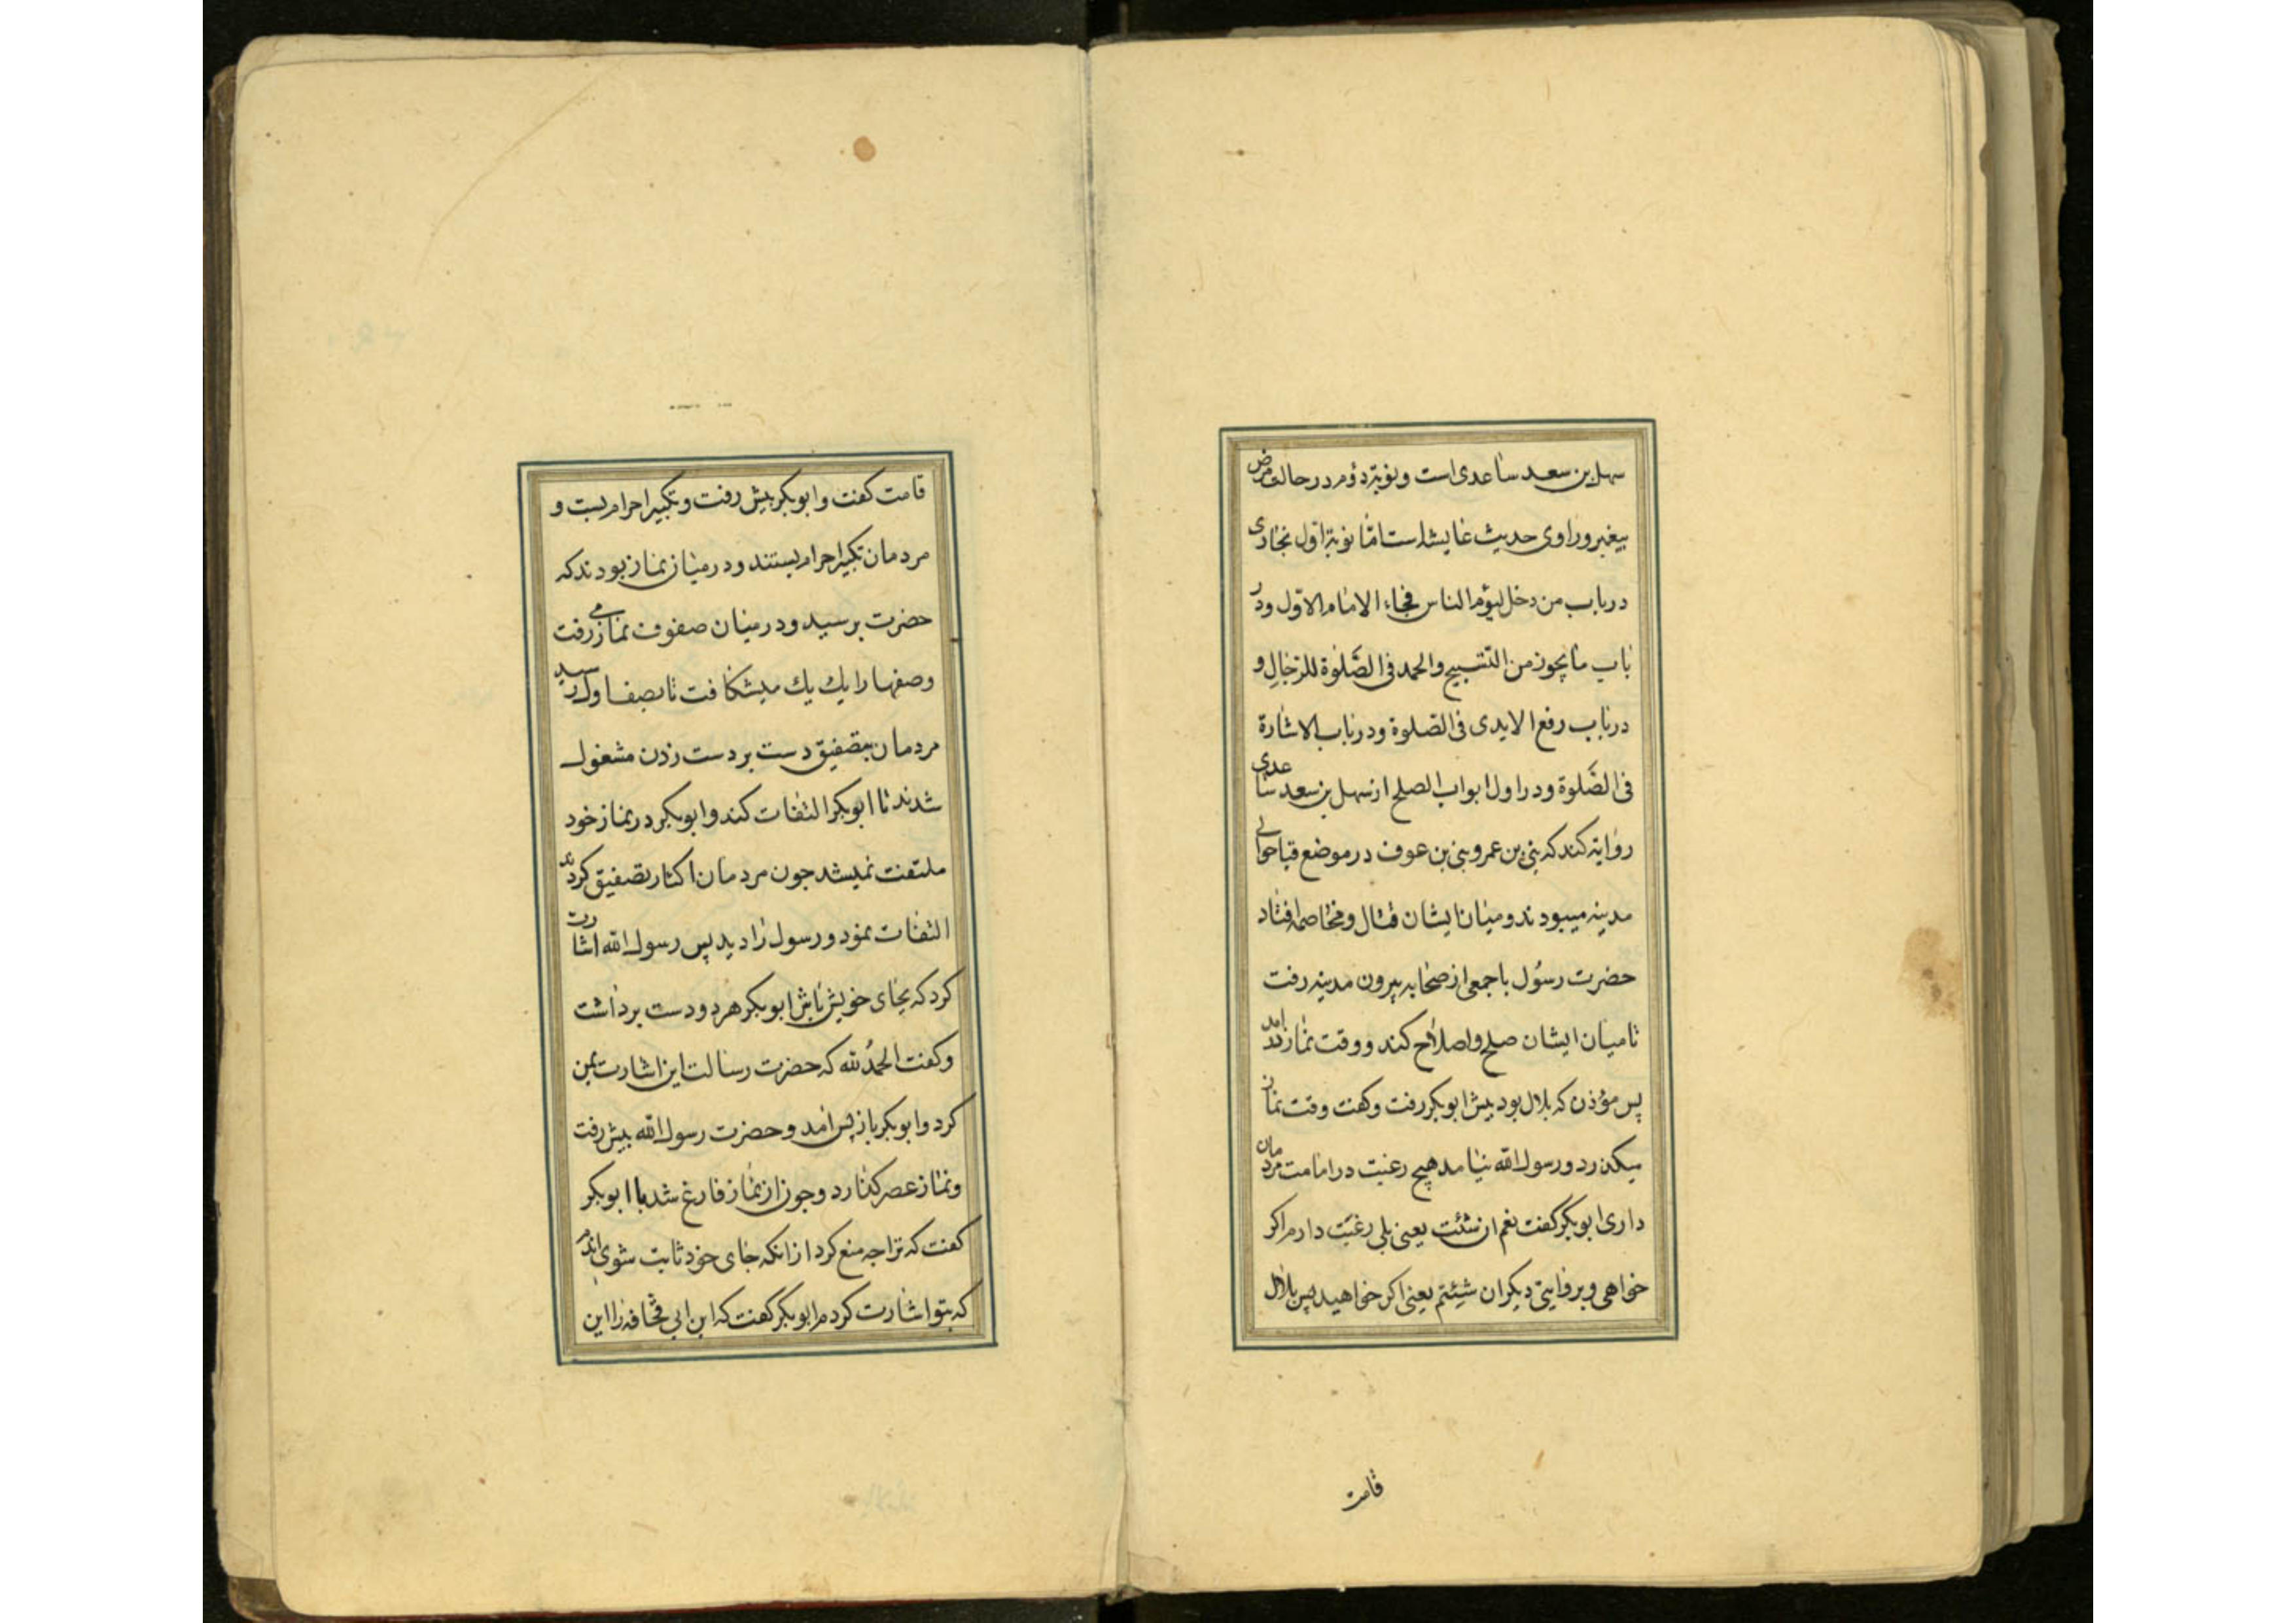 سهل بن سعد ساعدی است و نوبة دؤم در حالت مرض
پیغبر و راوی حدیث عایشه است امّا نوبة اوّل بخاری
در باب من دخل لیؤم الناس فجاء الامام الاوّل و در
باب ما یجوز من التسبیح والحمد فی الصّلوة للرّجال و
در باب رفع الایدی فی الصّلوة و در باب الاشارة
فی الصّلوة و در اول ابواب الصلح از سهل بن سعد ساعدی
روایة کند که بنی بن عمرو بنی بن عوف در موضع قبا حوالی
مدینه میبودند و میان ایشان قتال و مخاصمه افتاد
حضرت رسول با جمعی از صحابه بیرون مدینه رفت
تا میان ایشان صلح و اصلاح کند و وقت نماز در آمد
پس مؤذن که بلال بود پیش ابوبکر رفت و کفت وقت نماز
میکذرد و رسول الله نیامد هیچ رغبت در امامت مردمان
داری ابوبکر کفت نعم ان شئت یعنی بلی رغبت دارم اکر
خواهی و بروایتی دیکر ان شئتم یعنی اکر خواهید پس بلال
قامت
قامت کفت و ابوبکر پیش رفت و تکبیر احرام بست و
مردمان تکبیر احرام بستند و در میان نماز بودند که
حضرت برسید و در میان صفوف نماز می رفت
و صفها را یك یك میشکافت تا بصف اول رسید
مردمان بتصفیق دست بر دست زدن مشغول
شدند تا ابوبکر التفات کند و ابوبکر در نماز خود
ملتفت نمیشد جون مردمان اکثار تصفیق کردند
التفات نمود و رسول را دید پس رسول الله اشارت
کرد که بجای خویش باش ابوبکر هر دو دست برداشت
و کفت الحمدُ لله که حضرت رسالت این اشارت بمن
کرد و ابوبکر باز پس آمد و حضرت رسول الله پیش رفت
و نماز عصر کذارد و جون از نماز فارغ شد با ابوبکر
کفت که ترا جه منع کرد از انکه جای خود ثابت شوی
که بتو اشارت کردم ابوبکر کفت که ابن ابی قحافه را این